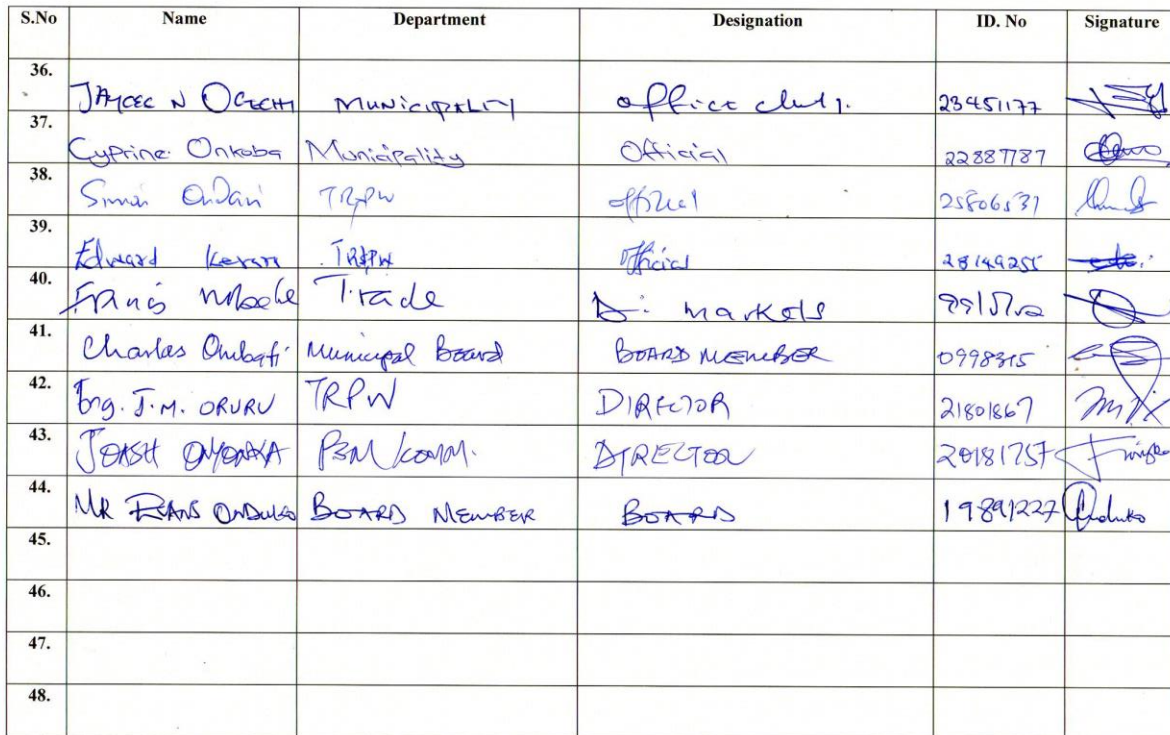 S.No Name Department Designation ID. No Signature
36. JAYCEE N OGECHI MUNICIPALITY office
37. Cyprine Onkoba Municipality Official 22887787
38. Simon TRPW official 25806531
39. Edward TRPW Official 28149255
40. Francis Trade markets
41. Charles Ombati Municipal Board BOARD MEMBER 0998315
42. Eng. J.M. ORURU TRPW DIRECTOR 21801867
43. JOASH ONYONKA PSM/COMM. DIRECTOR 20181757
44. MR EVANS ONDUKO BOARD MEMBER BOARD 19891227 Onduko
45.
46.
47.
48.